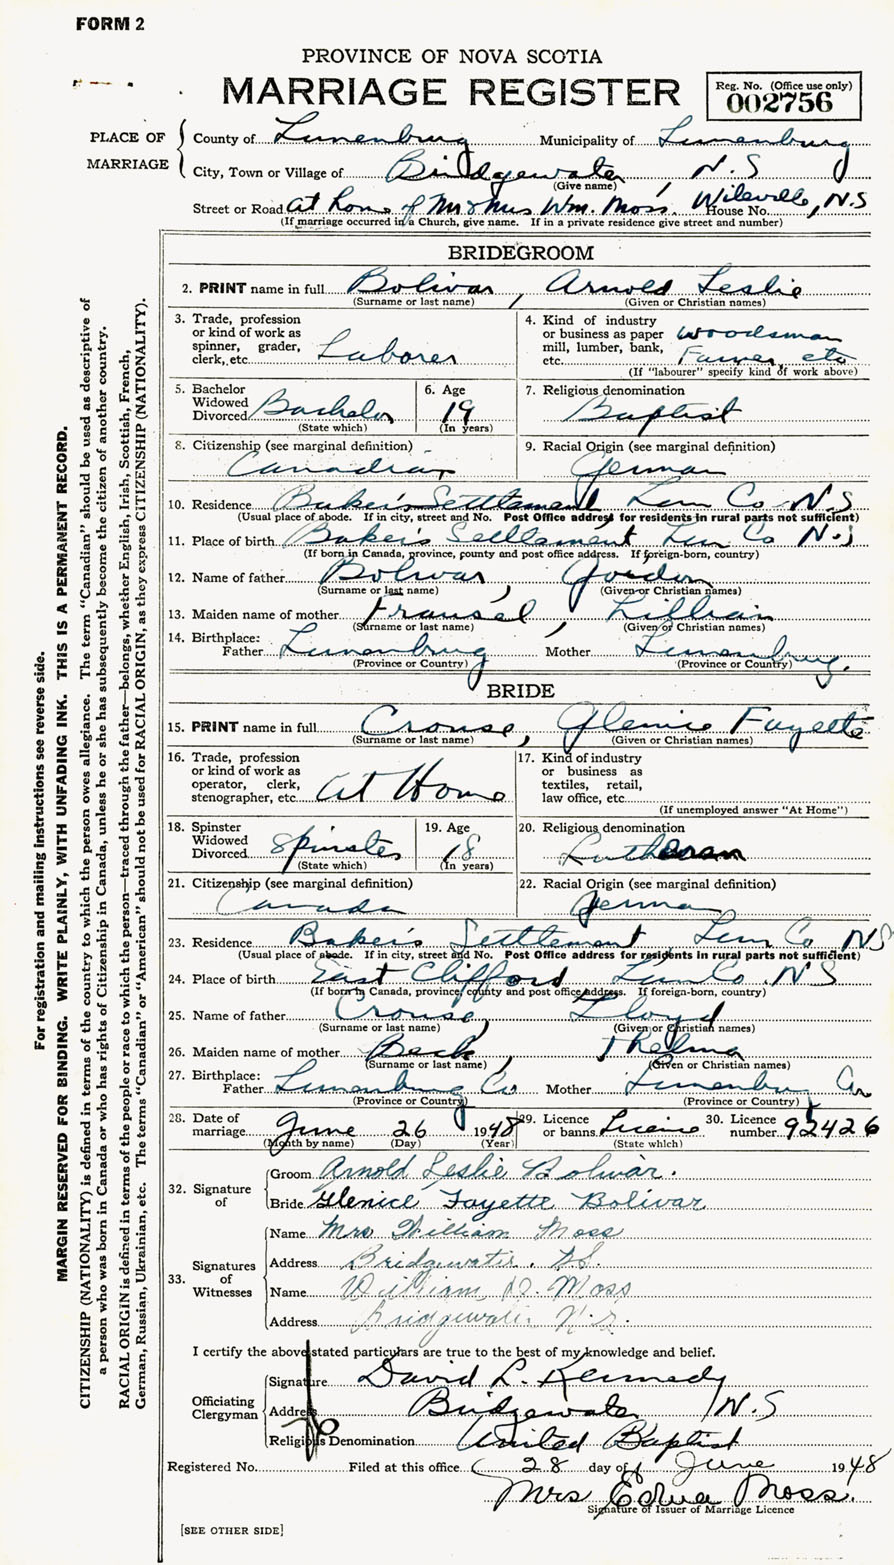 FORM 2
PROVINCE OF NOVA SCOTIA
MARRIAGE REGISTER
Reg. No. (Office use only)
002756
PLACE OF MARRIAGE
County of Lunenburg Municipality of Lunenburg
City, Town or Village of Bridgewater, N.S
(Give name)
Street or Road At home of Mr & Mrs Wm. Moss. Wileville, N.S House No.
(If marriage occurred in a Church, give name. If in a private residence give street and number)
BRIDEGROOM
2. PRINT name in full Bolivar, Arnold Leslie
(Surname or last name) (Given or Christian names)
3. Trade, profession or kind of work as spinner, grader, clerk, etc. Laborer
4. Kind of industry or business as paper mill, lumber, bank, etc. Woodsman Farmer, etc
(If "labourer" specify kind of work above)
5. Bachelor Widowed Divorced Bachelor
(State which)
6. Age 19
(In years)
7. Religious denomination
Baptist
8. Citizenship (see marginal definition)
Canadian
9. Racial Origin (see marginal definition)
German
10. Residence Baker's Settlement Lun Co N.S
(Usual place of abode. If in city, street and No. Post Office address for residents in rural parts not sufficient)
11. Place of birth Baker's Settlement Lun Co N.S
(If born in Canada, province, county and post office address. If foreign-born, country)
12. Name of father Bolivar, Gordon
(Surname or last name) (Given or Christian names)
13. Maiden name of mother Lillian
(Surname or last name) (Given or Christian names)
14. Birthplace:
Father Lunenburg Mother Lunenburg.
(Province or Country) (Province or Country)
BRIDE
15. PRINT name in full Crouse, Glenice Fayette
(Surname or last name) (Given or Christian names)
16. Trade, profession or kind of work as operator, clerk, stenographer, etc. At Home
17. Kind of industry or business as textiles, retail, law office, etc.
(If unemployed answer "At Home")
18. Spinster Widowed Divorced Spinster
(State which)
19. Age 18
(In years)
20. Religious denomination
Lutheran
21. Citizenship (see marginal definition)
Canada
22. Racial Origin (see marginal definition)
German
23. Residence Baker's Settlement Lun Co NS
(Usual place of abode. If in city, street and No. Post Office address for residents in rural parts not sufficient)
24. Place of birth East Clifford Lun Co. N S
(If born in Canada, province, county and post office address. If foreign-born, country)
25. Name of father Crouse, Lloyd
(Surname or last name) (Given or Christian names)
26. Maiden name of mother Beck, Thelma
(Surname or last name) (Given or Christian names)
27. Birthplace:
Father Lunenburg Co Mother Lunenburg Co
(Province or Country) (Province or Country)
28. Date of marriage June 26 1948
(Month by name) (Day) (Year)
29. Licence or banns Licence
(State which)
30. Licence number 92426
32. Signature of
Groom Arnold Leslie Bolivar.
Bride Glenice Fayette Bolivar
33. Signatures of Witnesses
Name Mrs William Moss
Address Bridgewater. N.S.
Name William D. Moss
Address Bridgewater N.S.
I certify the above stated particulars are true to the best of my knowledge and belief.
Officiating Clergyman
Signature David L. Kennedy
Address Bridgewater N.S
Religious Denomination United Baptist
Registered No. Filed at this office 28 day of June 1948
Mrs Edna Moss.
Signature of Issuer of Marriage Licence
[SEE OTHER SIDE]
For registration and mailing instructions see reverse side.
MARGIN RESERVED FOR BINDING. WRITE PLAINLY, WITH UNFADING INK. THIS IS A PERMANENT RECORD.
CITIZENSHIP (NATIONALITY) is defined in terms of the country to which the person owes allegiance. The term "Canadian" should be used as descriptive of
a person who was born in Canada or who has rights of Citizenship in Canada, unless he or she has subsequently become the citizen of another country.
RACIAL ORIGIN is defined in terms of the people or race to which the person—traced through the father—belongs, whether English, Irish, Scottish, French,
German, Russian, Ukrainian, etc. The terms "Canadian" or "American" should not be used for RACIAL ORIGIN, as they express CITIZENSHIP (NATIONALITY).